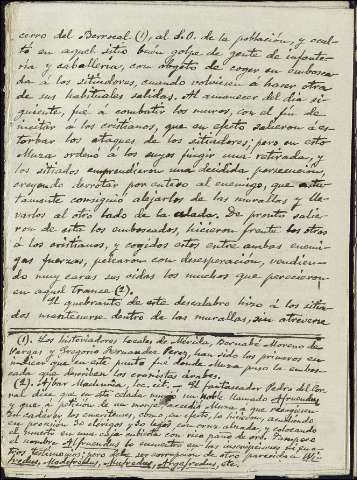 cerro del Berrocal (1), al S.O. de la población, y ocul-
tó en aquel sitio buen golpe de gente de infante-
ría y caballería, con objeto de coger en embosca-
da á los sitiadores, cuando volvieran á hacer otra
de sus habituales salidas. Al amanecer del día si-
guiente, fué á combatir los muros, con el fin de
incitar á los cristianos, que en efecto salieron á es-
torbar los ataques de los sitiadores; pero en esto
Muza ordenó á los suyos fingir una retirada, y
los sitiados emprendieron una decidida persecución,
creyendo derrotar por entero al enemigo, que
tamente consiguió alejarlos de las murallas y lle-
varlos al otro lado de la celada. De pronto salie-
ron de esta los emboscados, hicieron frente los otros
á los cristianos, y cogidos estos entre ambas enemi-
gas fuerzas, pelearon con desesperación, vendien-
do muy caras sus vidas los muchos que perecieron
en aquel trance (2).
El quebranto de este descalabro hizo á los sitia-
dos mantenerse dentro de las murallas, sin atreverse
(1). Los historiadores locales de Mérida, Bernabé Moreno de
Vargas y Gregorio Fernández Perez, han sido los primeros en
indicar que en este punto fué donde Muza puso la embos-
cada que describen los cronistas árabes.
(2). Ajbar Machmúa, loc. cit. — El fantaseador Pedro del Co-
rral dice que en esta celada murió un noble llamado Afrucudus
y que, á petición de un monje, accedió Muza á que recogiesen
su cadáver los emeritenses, como, en efecto, lo hicieron, saliendo
en procesión 30 clérigos y 30 legos con cruz alzada, y colocando
el muerto en una caja cubierta con rico paño de oro. Tampoco
el nombre Afrucudus lo encuentro en las inscripciones ni en
otros testimonios; pero debe ser corrupción de otro parecido á Wi-
fredus, Modefredus, Aufredus, Argefredus, etc.